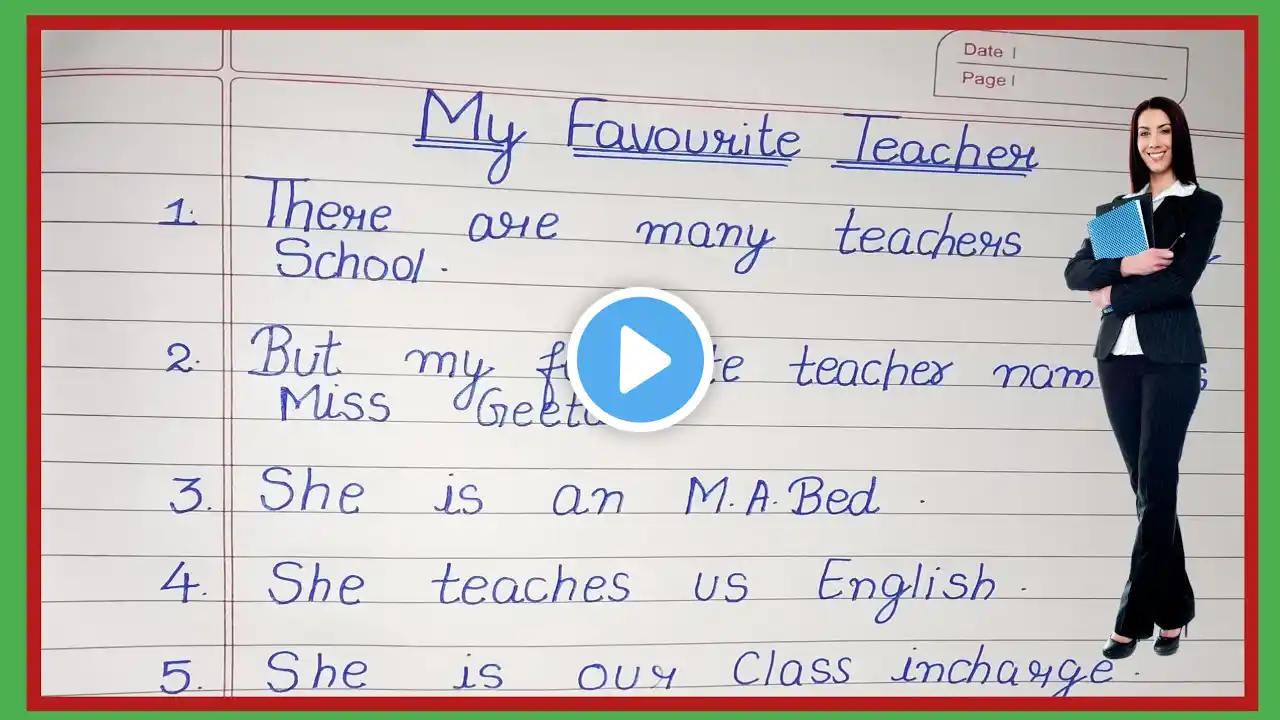 Date
Page
My Favourite Teacher
1. There are many teachers
School.
2. But my teacher
Miss
3. She is an M.A.Bed.
4. She teaches us English.
5. She is our Class incharge.